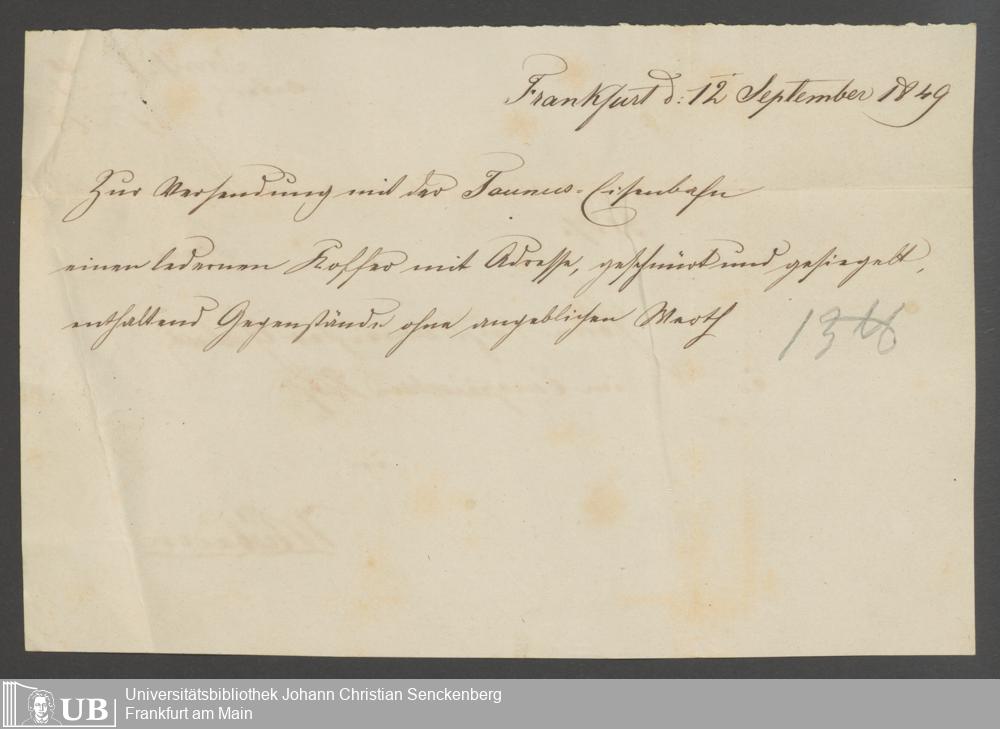 Frankfurt d: 12 September 1849
Zur Versendung mit der Taunus-Eisenbahn
einen ledernen Koffer mit Adresse, geschnürt und gesiegelt,
enthaltend Gegenstände ohne angeblichen Werth
13 ℔
Universitätsbibliothek Johann Christian Senckenberg
Frankfurt am Main
UB